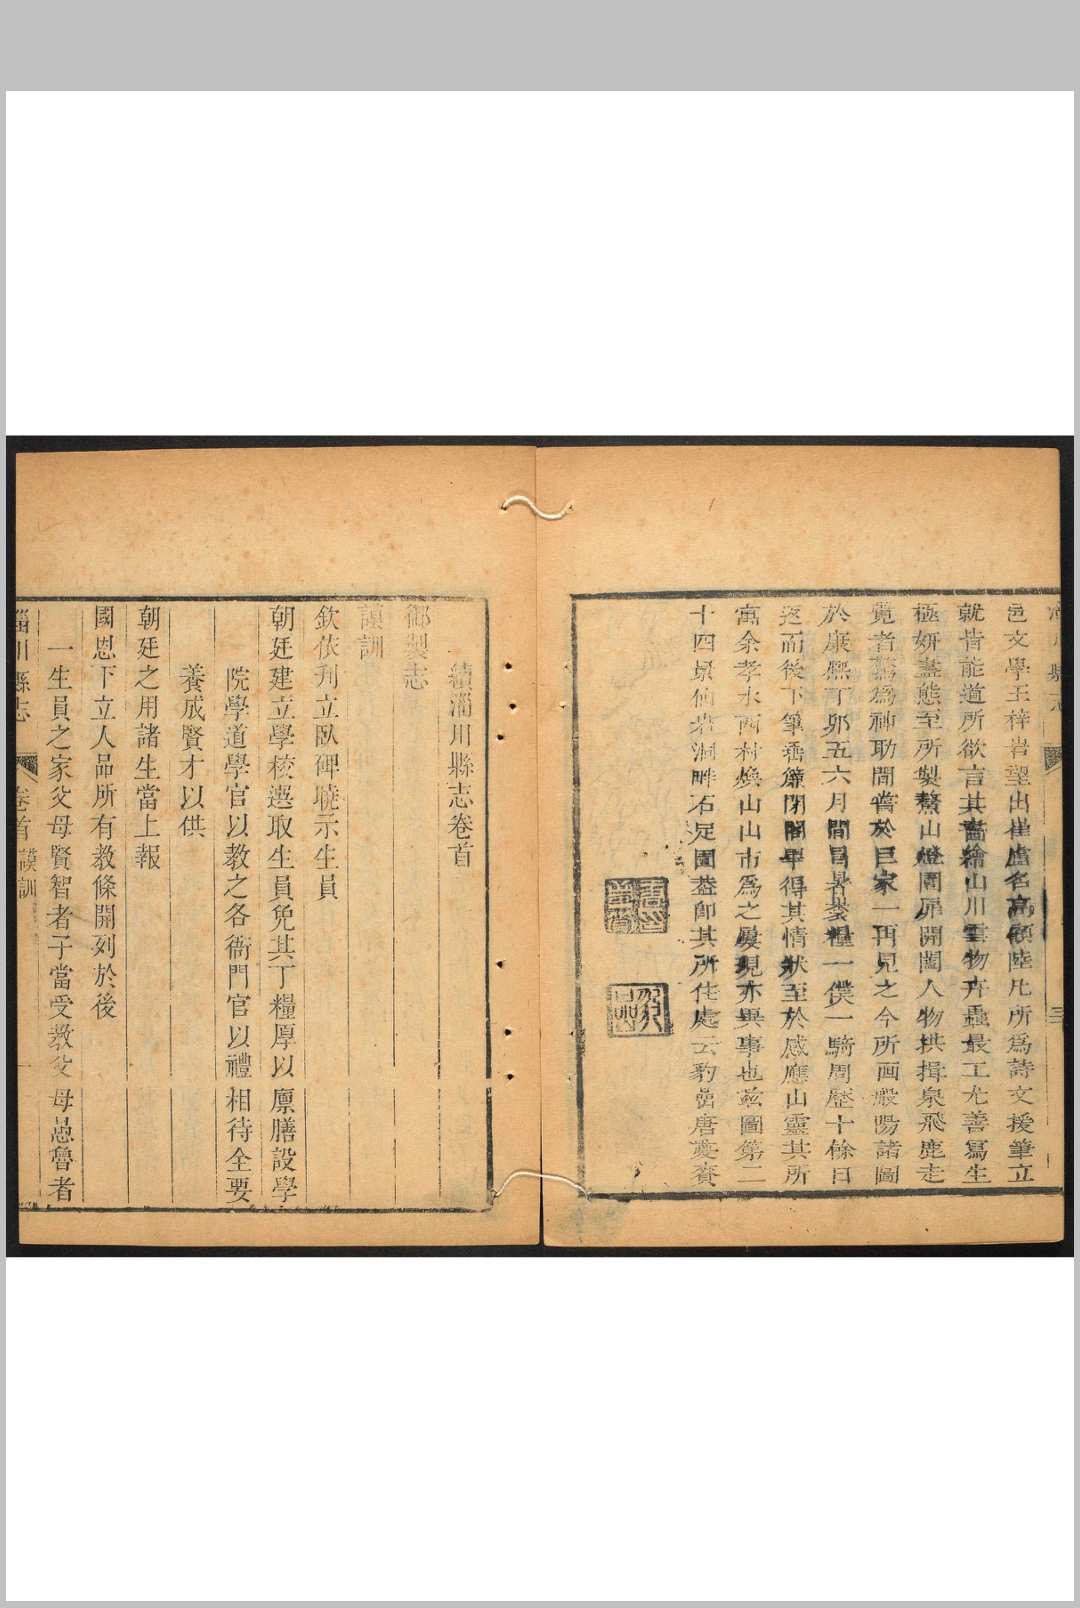 邑文學王梓岩望出崔盧名高顧陸凡所為詩文援筆立
就皆能道所欲言其畫繪山川雲物卉蟲最工尤善寫生
極妍盡態至所製鰲山燈圖屏開闔人物拱揖泉飛鹿走
覽者驚為神助間嘗於巨家一再見之今所画般陽諸圖
於康熙丁卯五六月間冒暑裹糧一僕一騎周歷十餘日
返而後下筆垂簾閉閣畢得其情狀至於感應山靈其所
寓余孝水西村煥山山市為之屢現亦異事也茲圖第二
十四景仙岩洞畔石疋園葢即其所住處云豹嵒唐夢賚
三
續淄川縣志卷首
御製志
謨訓
欽依刋立臥碑曉示生員
朝廷建立學校選取生員免其丁糧厚以廪膳設學
院學道學官以教之各衙門官以禮相待全要
養成賢才以供
朝廷之用諸生當上報
國恩下立人品所有教條開列於後
一生員之家父母賢智者子當受教父母愚魯者
淄川縣志 卷首 謨訓 一